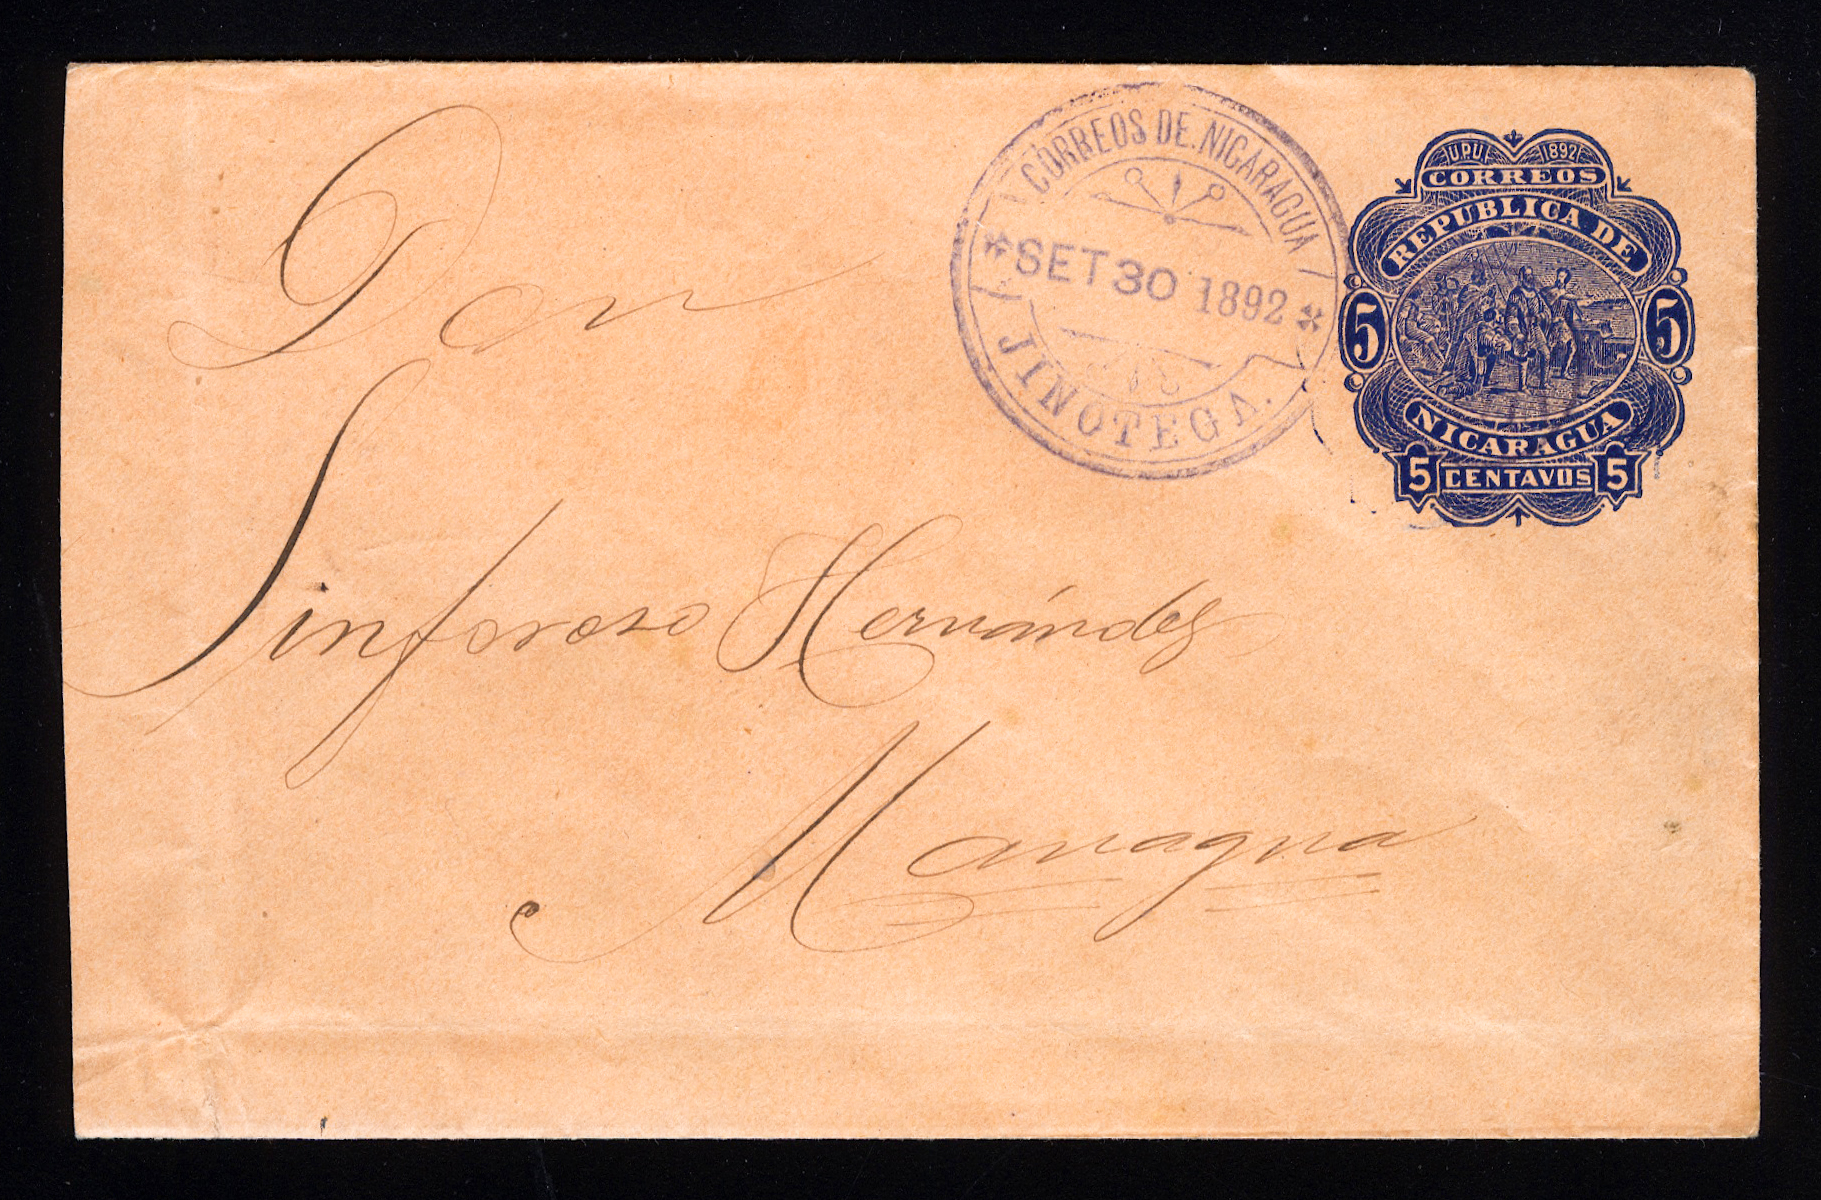 CORREOS DE NICARAGUA
SET 30 1892
JINOTEGA.
U.P.U. 1892
CORREOS
REPUBLICA DE
5 5
NICARAGUA
5 CENTAVOS 5
Don
Sinforoso Hernández
Managua